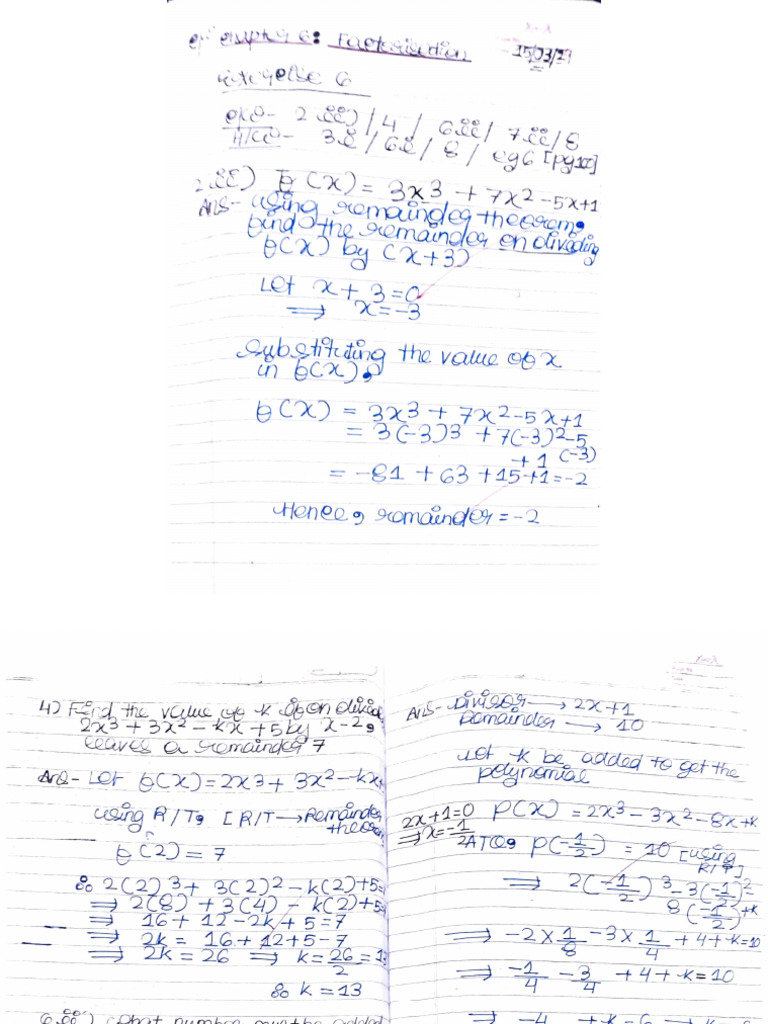 Chapter 6: Factorisation
15/03/21
Exercise 6
2.ii) / 4 / 6.ii / 7.ii / 8
H/W - 3.i / 6.i / 8 / eg 6
2.ii) f(x) = 3x3 + 7x2 - 5x + 1
Ans- using remainder theorem,
find the remainder on dividing
f(x) by (x+3)
Let x + 3 = 0
⟹ x = -3
substituting the value of x
in f(x),
f(x) = 3x3 + 7x2 - 5x + 1
= 3(-3)3 + 7(-3)2 - 5
(-3)
+ 1
= -81 + 63 + 15 + 1 = -2
Hence, remainder = -2
4) Find the value of k if on
2x3 + 3x2 - kx + 5 by x - 2,
leaves a remainder 7
Ans- Let f(x) = 2x3 + 3x2 - kx+
using R/T, [R/T → Remainder
f(2) = 7
∴ 2(2)3 + 3(2)2 - k(2) + 5 =
⟹ 2(8) + 3(4) - k(2) + 5 =
⟹ 16 + 12 - 2k + 5 = 7
⟹ 2k = 16 + 12 + 5 - 7
⟹ 2k = 26 ⟹ k = 26/2 = 13
∴ k = 13
6.ii) What number must be added
Ans- Divisor → 2x + 1
Remainder → 10
Let k be added to get the
polynomial
2x + 1 = 0
P(x) = 2x3 - 3x2 - 8x + k
⟹ x = -1/2
ATQ, P(-1/2) = 10 [using R/T]
⟹ 2(-1/2)3 - 3(-1/2)2 -
8(-1/2) + k
⟹ -2 × 1/8 - 3 × 1/4 + 4 + k = 10
⟹ -1/4 - 3/4 + 4 + k = 10
⟹ -4